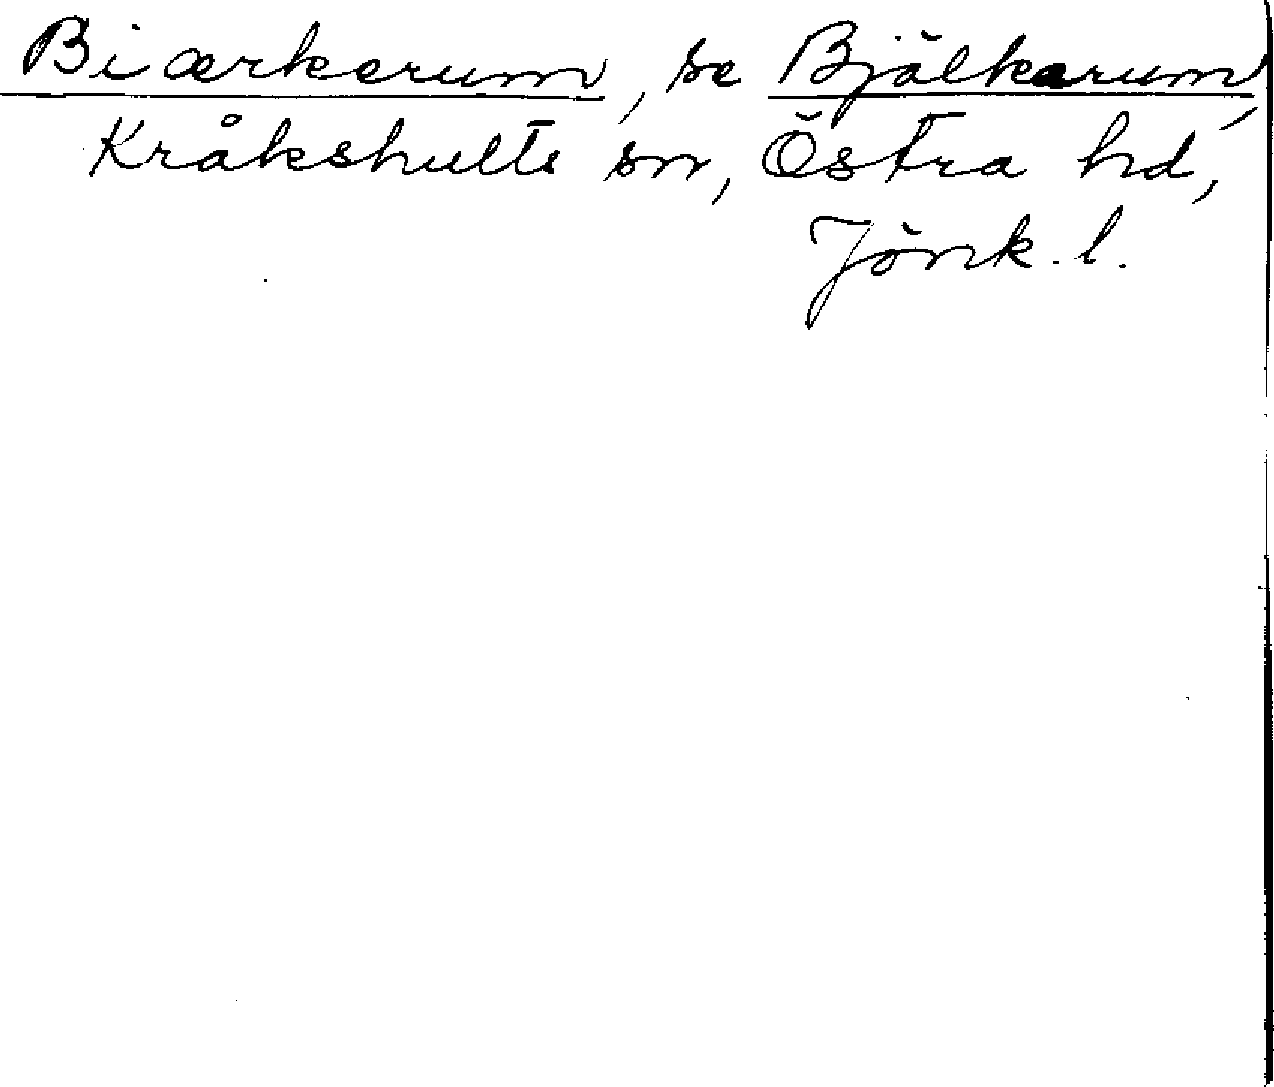 Biærkerum, se Bjälkerum,
Kråkshults sn, Östra hd,
Jönk. l.